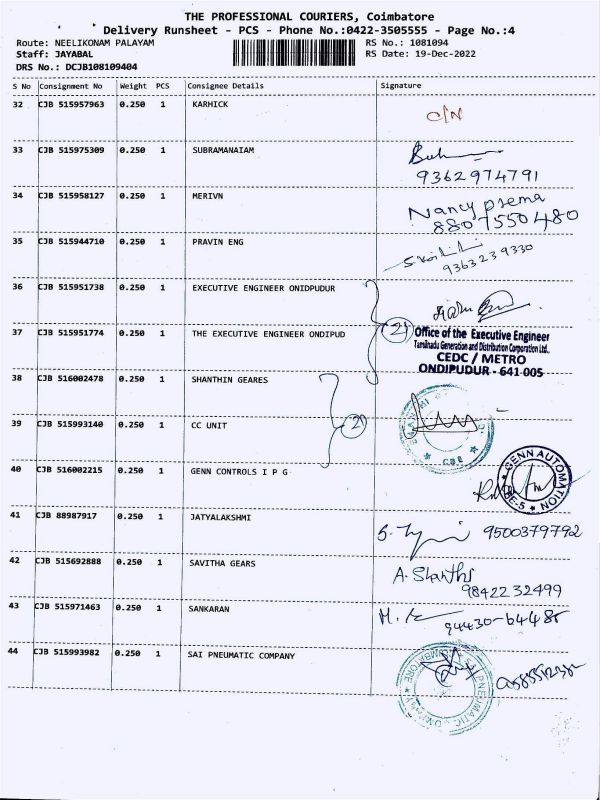 THE PROFESSIONAL COURIERS, Coimbatore
Delivery Runsheet - PCS - Phone No.:0422-3505555 - Page No.:4
Route: NEELIKONAM PALAYAM
RS No.: 1081094
Staff: JAYABAL
RS Date: 19-Dec-2022
DRS No.: DCJB108109404
S No Consignment No Weight PCS Consignee Details Signature
32 CJB 515957963 0.250 1 KARHICK
C/N
33 CJB 515975309 0.250 1 SUBRAMANAIAM
9362974791
34 CJB 515958127 0.250 1 MERIVN
Nancy prema
8807550480
35 CJB 515944710 0.250 1 PRAVIN ENG
9363239330
36 CJB 515951738 0.250 1 EXECUTIVE ENGINEER ONIDPUDUR
37 CJB 515951774 0.250 1 THE EXECUTIVE ENGINEER ONDIPUD
2
Office of the Executive Engineer
Tamilnadu Generation and Distribution Corporation Ltd.,
CEDC / METRO
ONDIPUDUR - 641 005
38 CJB 516002478 0.250 1 SHANTHIN GEARES
39 CJB 515993140 0.250 1 CC UNIT
2
CBE
40 CJB 516002215 0.250 1 GENN CONTROLS I P G
GENN AUTOMATION
41 CJB 88987917 0.250 1 JATYALAKSHMI
9500379792
42 CJB 515692888 0.250 1 SAVITHA GEARS
A. Shanthi
9842232499
43 CJB 515971463 0.250 1 SANKARAN
94430-64485
44 CJB 515993982 0.250 1 SAI PNEUMATIC COMPANY
PNEUMATIC